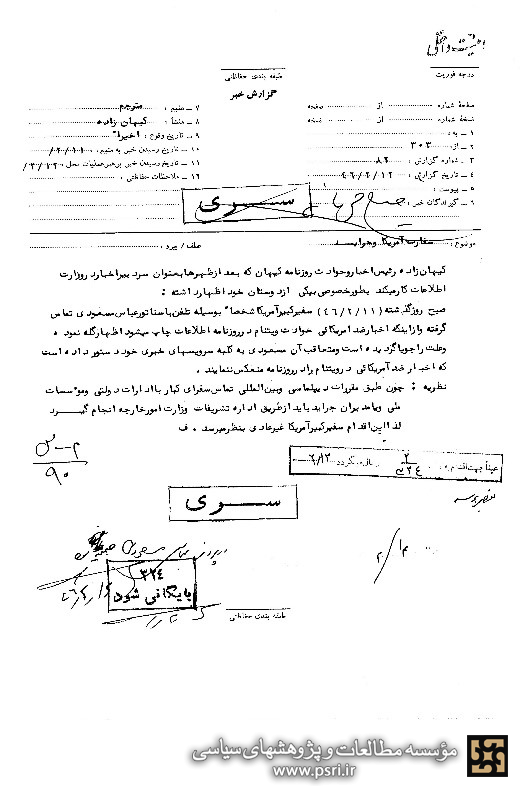 درجه فوریت
طبقه بندی حفاظتی
گزارش خبر
صفحهٔ شماره از صفحه
نسخهٔ شماره از نسخه
۱ ـ به :
۲ ـ از : ۳۰۳
۳ ـ شماره گزارش : ۸۲
۴ ـ تاریخ گزارش : ۴۶/۲/۱۲
۵ ـ پیوست :
۶ ـ گیرندگان خبر :
۷ ـ منبع : مترجم
۸ ـ منشأ : کیهان زاده
۹ ـ تاریخ وقوع : اخیرا"
۱۰ ـ تاریخ رسیدن خبر به منبع :
۱۱ ـ تاریخ رسیدن خبر برهبر عملیات محل :
۱۲ ـ ملاحظات حفاظتی :
ســری
موضوع : سفارت آمریکا وجراید
عطف / پیرو :
کیهان زاده رئیس اخبار وحوادث روزنامه کیهان که بعد ازظهرها بعنوان سردبیر اخبار د روزارت
اطلاعات کارمیکند بطورخصوصی بیکی ازد وستان خود اظهارد اشته :
صبح روزگذشته (۴۶/۲/۱۱) سفیرکبیرآمریکا شخصا" بوسیله تلفن باسناتورعباس مسعودی تماس
گرفته وازاینکه اخبارضد امریکائی حوادث ویتنام د رروزنامه اطلاعات چاپ میشود اظهارگله نموده
وعلت را جویا گردیده است ومتعاقب آن مسعودی به کلیه سرویسهای خبری خود دستورداده است
که اخبارضد آمریکائی د رویتنام راد رروزنامه منعکس ننمایند .
نظریه : چون طبق مقررات دیپلماسی وبین‌المللی تماس سفرای کبار باادارات دولتی وموئسسات
ملی ویامدیران جراید باید ازطریق اداره تشریفات وزارت امورخارجه انجام گیرد
لذا این اقدام سفیرکبیرآمریکا غیرعادی بنظرمیرسد . ف
۹۰
عیناً جهت اقدام به ۳۲۴ گردد ۲/۱۳
ســری
۳۲۴
بایگانی شود
طبقه بندی حفاظتی
مؤسسه مطالعات و پژوهشهای سیاسی
www.psri.ir